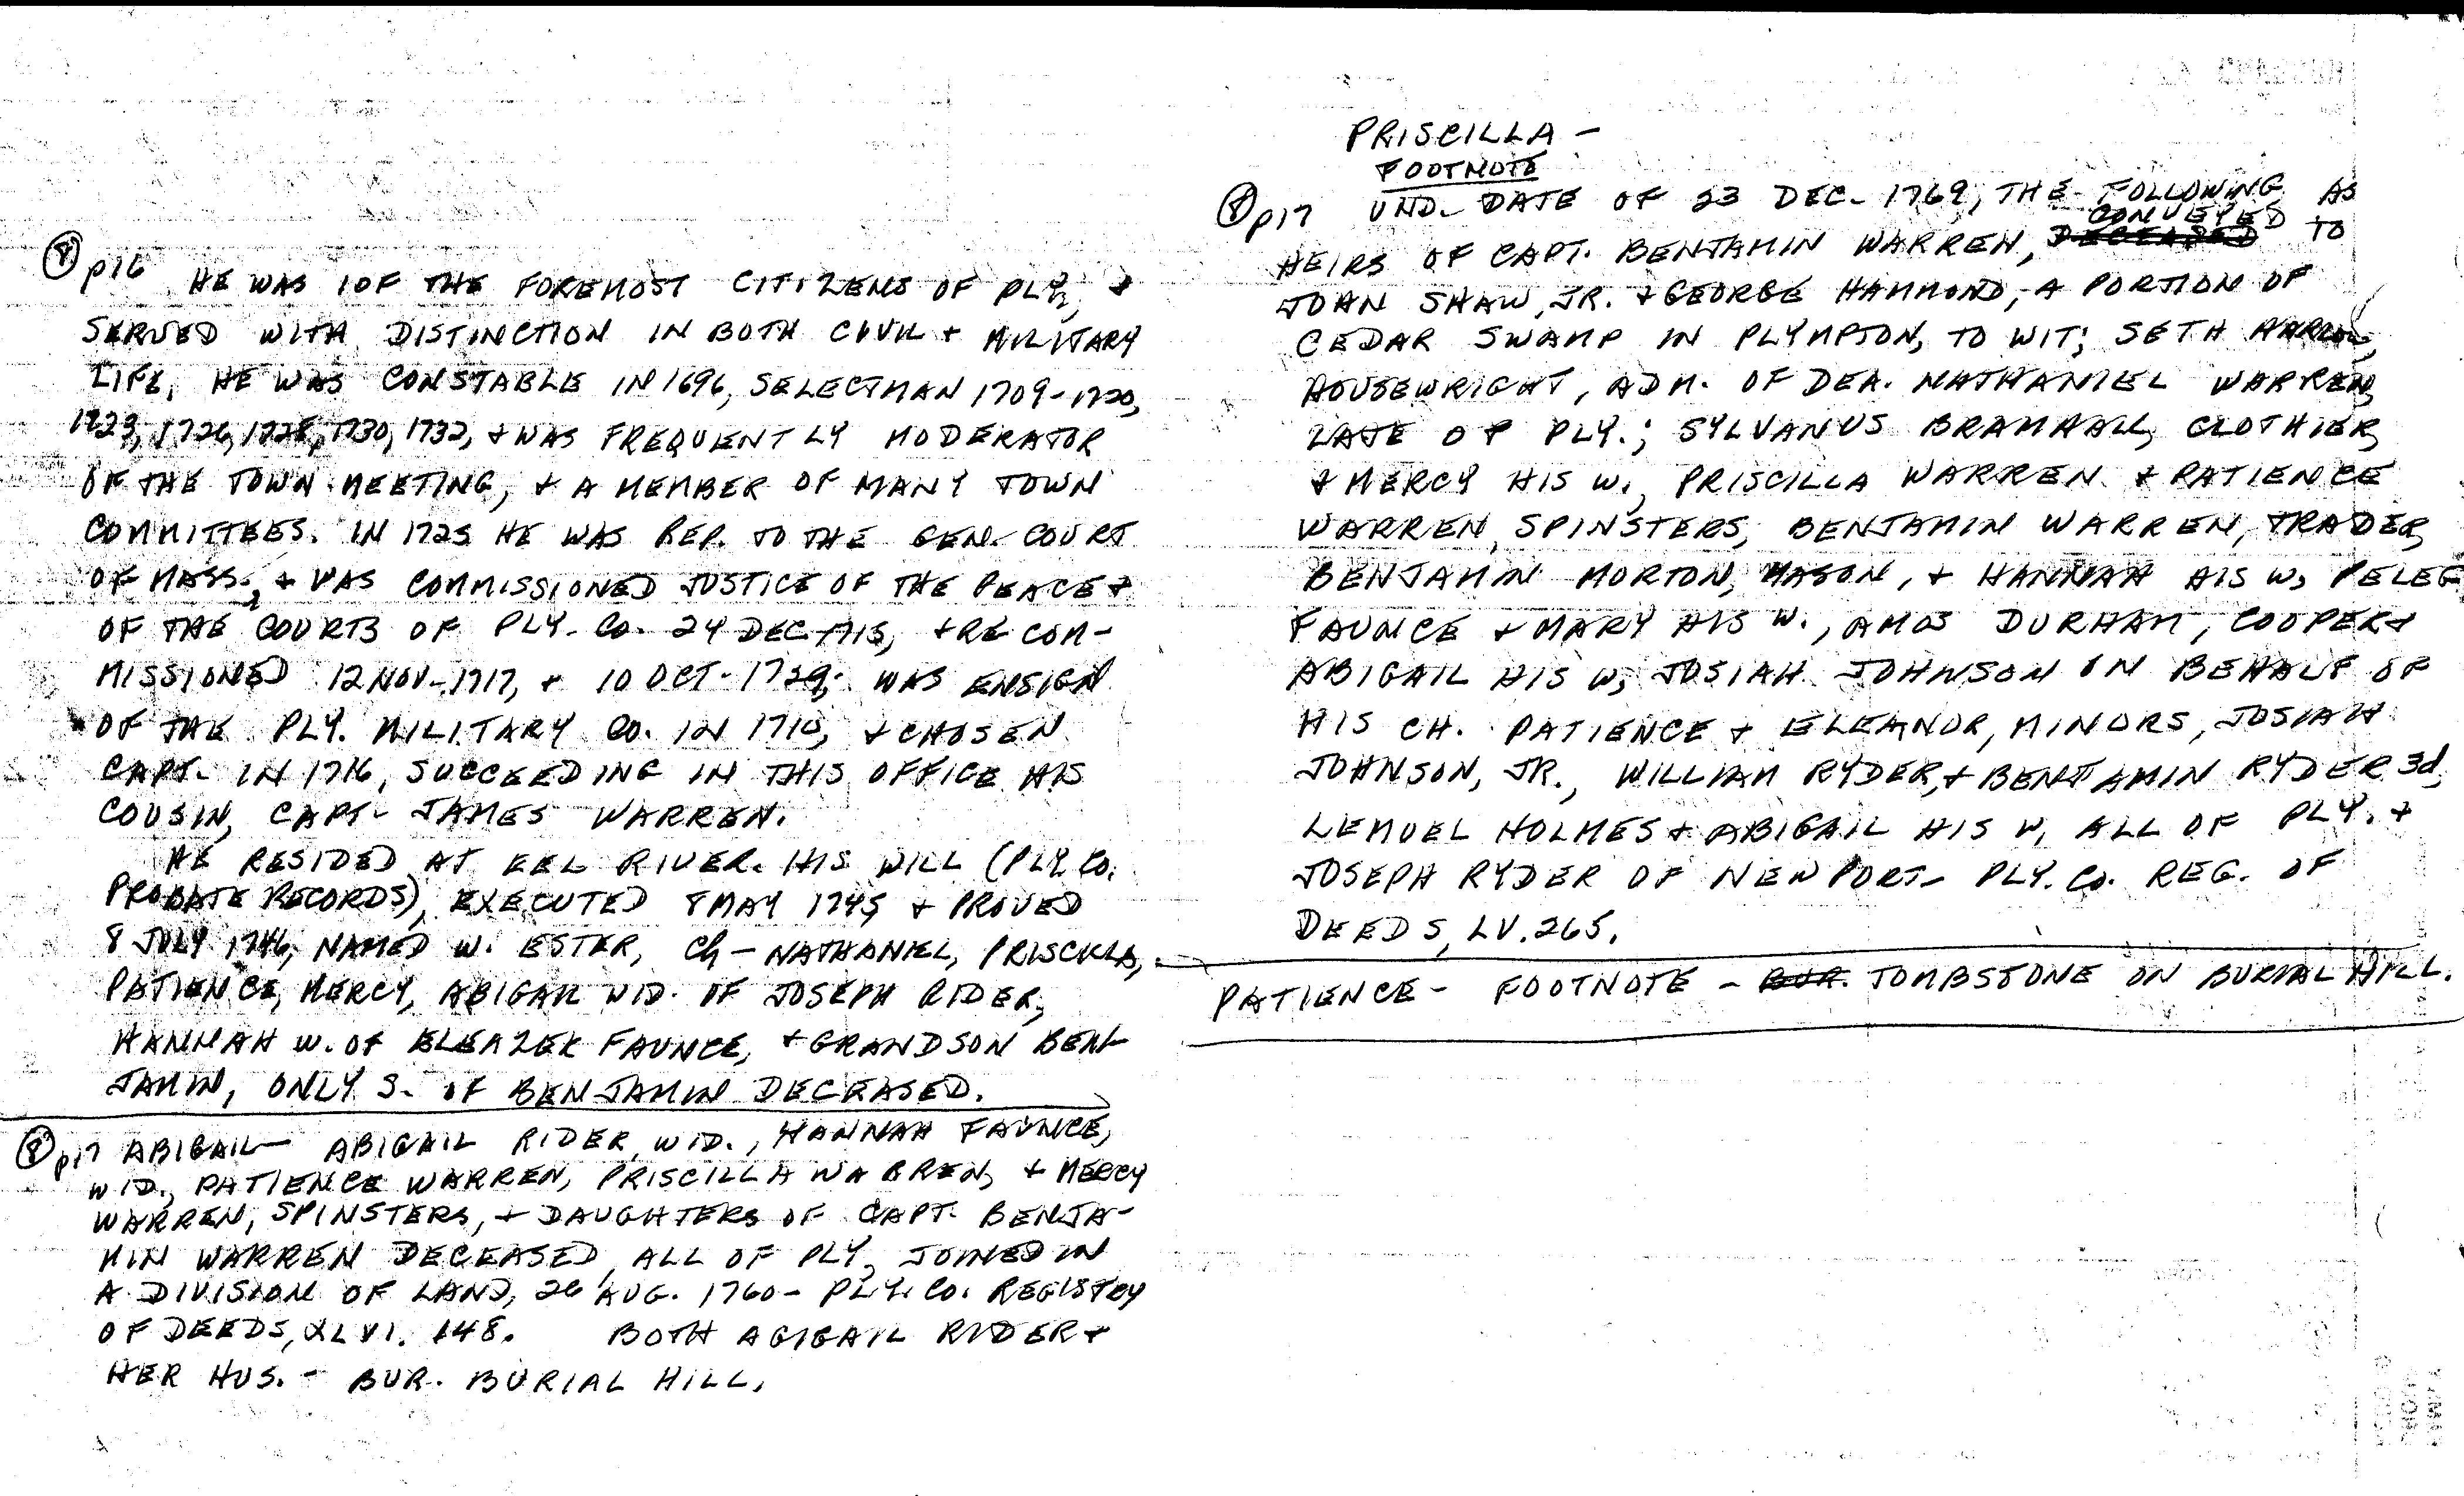 ⑧ p16 HE WAS 1 OF THE FOREMOST CITIZENS OF PLY, +
SERVED WITH DISTINCTION IN BOTH CIVIL + MILITARY
LIFE, HE WAS CONSTABLE IN 1696, SELECTMAN 1709-1720,
1723, 1726, 1728, 1730, 1732, + WAS FREQUENTLY MODERATOR
OF THE TOWN MEETING, + A MEMBER OF MANY TOWN
COMMITTEES. IN 1725 HE WAS REP. TO THE GEN. COURT
OF MASS., + WAS COMMISSIONED JUSTICE OF THE PEACE +
OF THE COURTS OF PLY. CO. 24 DEC 1715, + RE COM-
MISSIONED 12 NOV. 1717, + 10 OCT. 1729; WAS ENSIGN
OF THE PLY. MILITARY CO. IN 1710, + CHOSEN
CAPT. IN 1716, SUCCEEDING IN THIS OFFICE HIS
COUSIN, CAPT. JAMES WARREN.
HE RESIDED AT EEL RIVER. HIS WILL (PLY. CO.
PROBATE RECORDS), EXECUTED 8 MAY 1745, + PROVED
8 JULY 1746, NAMED W. ESTER, Ch - NATHANIEL, PRISCILLA,
PATIENCE, MERCY, ABIGAIL WID. OF JOSEPH RIDER,
HANNAH W. OF ELEAZER FAUNCE, + GRANDSON BEN-
JAMIN, ONLY S. OF BENJAMIN DECEASED.
⑧ p17 ABIGAIL - ABIGAIL RIDER, WID., HANNAH FAUNCE,
WID., PATIENCE WARREN, PRISCILLA WARREN, + MERCY
WARREN, SPINSTERS, + DAUGHTERS OF CAPT. BENJA-
MIN WARREN DECEASED, ALL OF PLY, JOINED IN
A DIVISION OF LAND, 26 AUG. 1760 - PLY. CO. REGISTRY
OF DEEDS, XLVI. 148. BOTH AGIGAIL RIDER +
HER HUS. - BUR. BURIAL HILL.
PRISCILLA -
FOOTNOTE
⑧ p17 UND. DATE OF 23 DEC. 1769, THE FOLLOWING AS
HEIRS OF CAPT. BENJAMIN WARREN, DECEASED CONVEYED TO
JOHN SHAW, JR. + GEORGE HAMMOND, A PORTION OF
CEDAR SWAMP IN PLYMPTON, TO WIT; SETH
HOUSEWRIGHT, ADM. OF DEA. NATHANIEL WARREN,
LATE OF PLY.; SYLVANUS BRAMHALL, CLOTHIER,
+ MERCY HIS W., PRISCILLA WARREN + PATIENCE
WARREN, SPINSTERS, BENJAMIN WARREN, TRADER,
BENJAMIN MORTON, MASON, + HANNAH HIS W, PELEG
FAUNCE + MARY HIS W., AMOS DURHAM, COOPER +
ABIGAIL HIS W, JOSIAH JOHNSON IN BEHALF OF
HIS CH. PATIENCE + ELEANOR, MINORS, JOSIAH
JOHNSON, JR., WILLIAM RYDER, + BENJAMIN RYDER 3d,
LEMUEL HOLMES + ABIGAIL HIS W, ALL OF PLY. +
JOSEPH RYDER OF NEWPORT - PLY. CO. REG. OF
DEEDS, LV. 265.
PATIENCE - FOOTNOTE - BUR. TOMBSTONE ON BURIAL HILL.